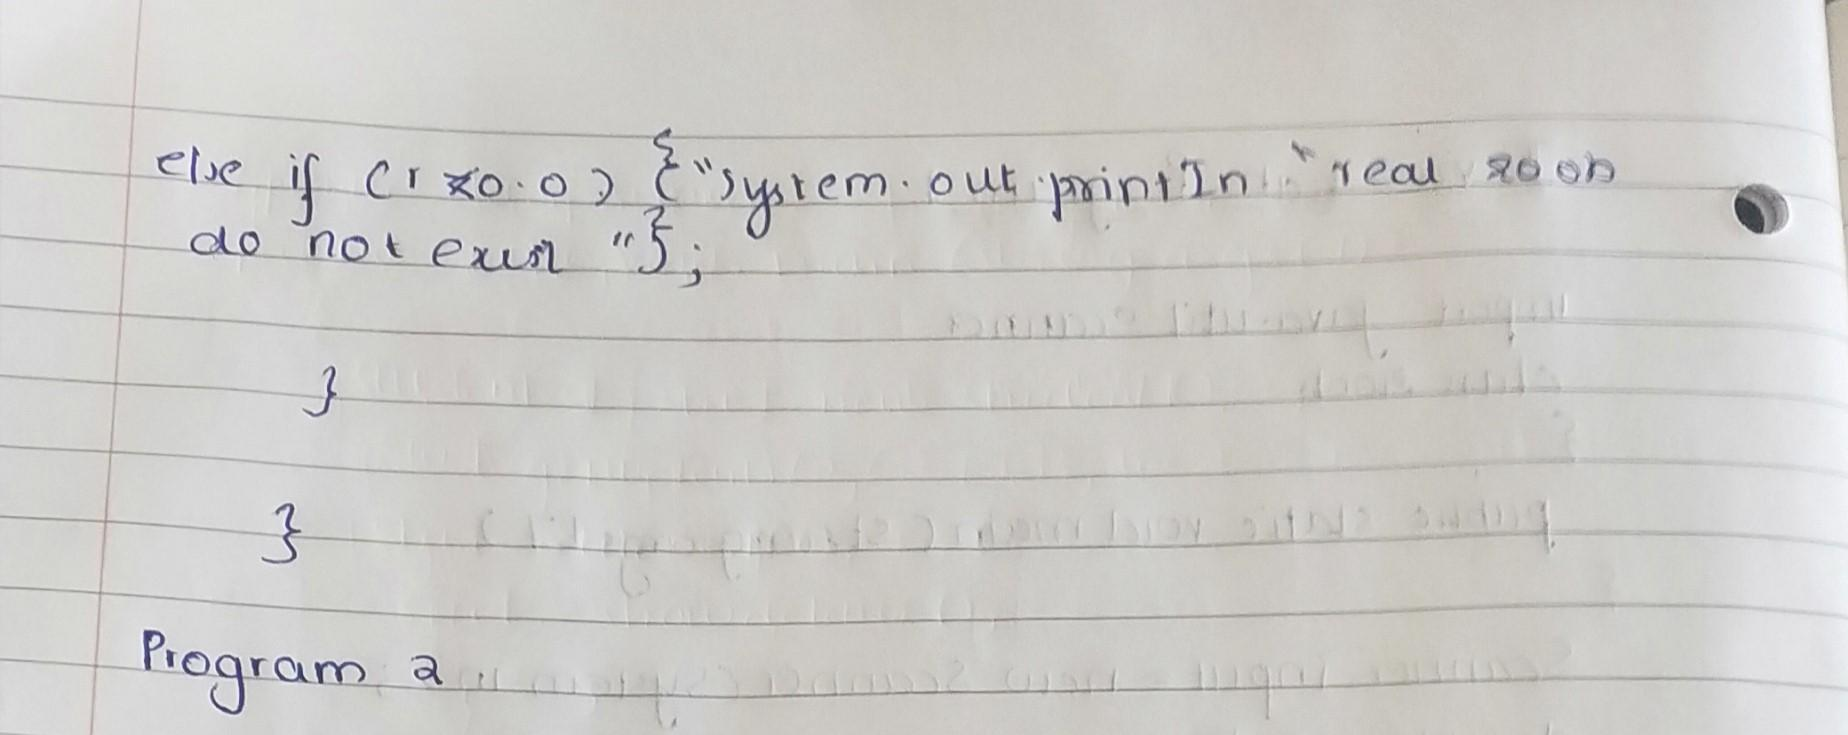 else if (r <0.0) {"system.out.println "real roots
do not exist "};
}
}
Program 2